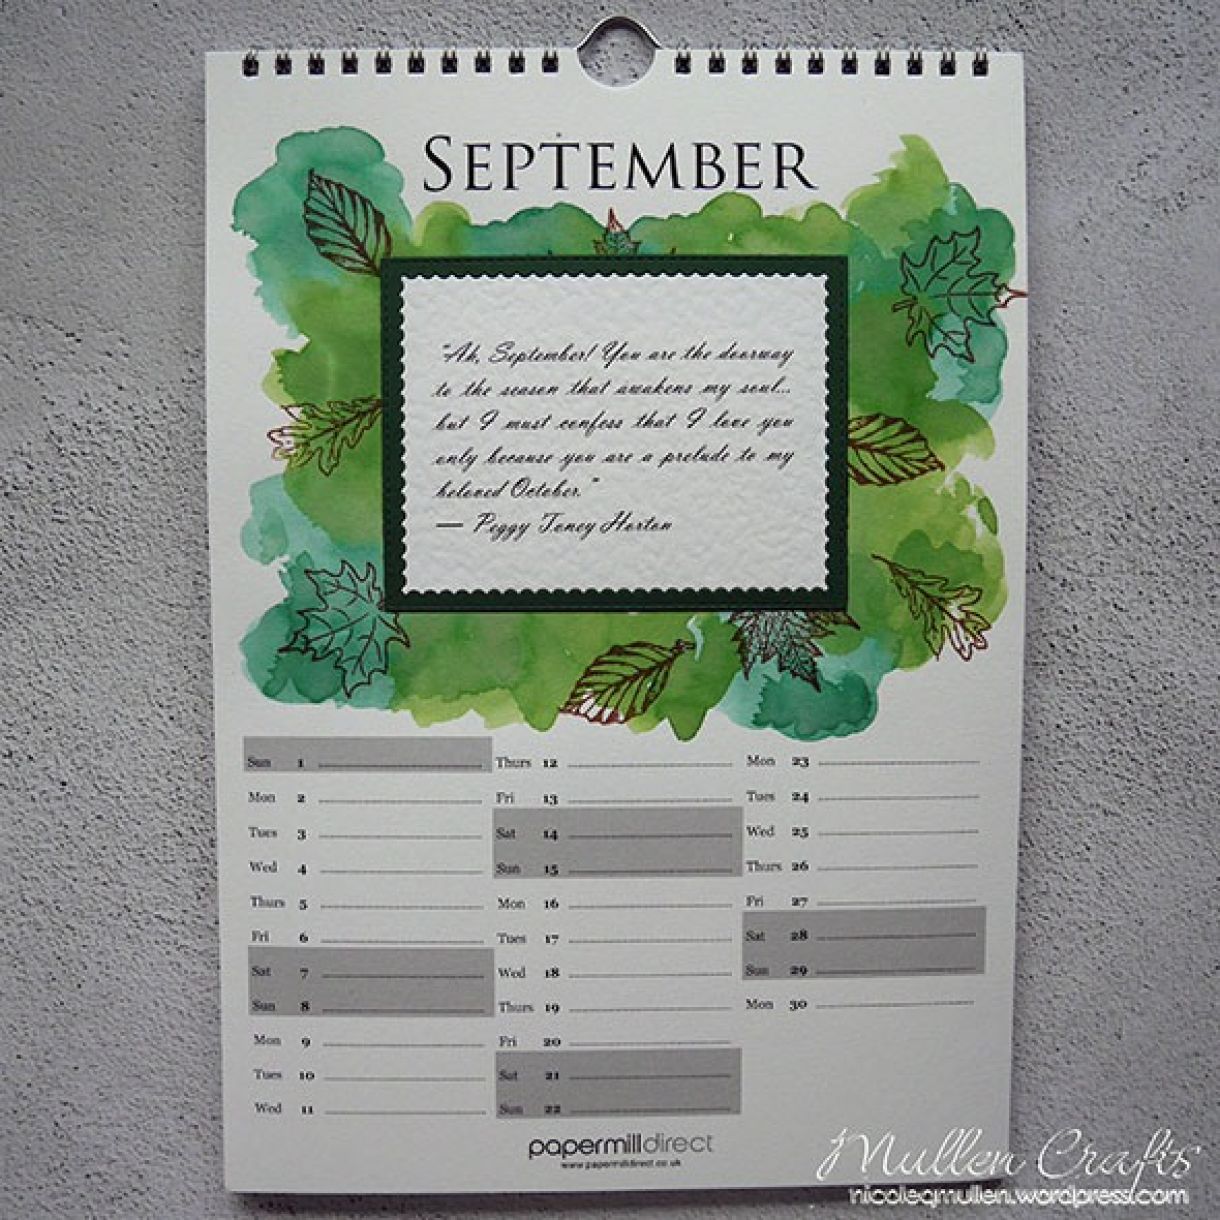 SEPTEMBER
"Ah, September! You are the doorway
to the season that awakens my soul...
but I must confess that I love you
only because you are a prelude to my
beloved October."
— Peggy Toney Horton
Sun 1
Mon 2
Tues 3
Wed 4
Thurs 5
Fri 6
Sat 7
Sun 8
Mon 9
Tues 10
Wed 11
Thurs 12
Fri 13
Sat 14
Sun 15
Mon 16
Tues 17
Wed 18
Thurs 19
Fri 20
Sat 21
Sun 22
Mon 23
Tues 24
Wed 25
Thurs 26
Fri 27
Sat 28
Sun 29
Mon 30
papermilldirect
www.papermilldirect.co.uk
Mullen Crafts
nicoleqmullen.wordpress.com